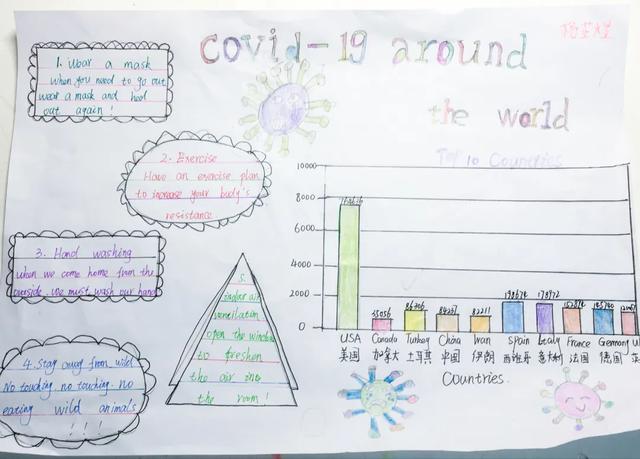 covid-19 around
the world
1. Wear a mask
when you need to go out
wear a mask and
out again!
2. Exercise
Have an exercise plan
to increase your body's
resistance.
3. Hand washing
when we come home from the
outside. we must wash our hand
4. Stay away from wild
No touching. no touching. no
eating wild animals
! ! !
5.
indoor air
ventilation
open the window
to freshen
the air ing
the room!
Top 10 Countries
10000
8000
6000
4000
2000
0
86306
84267
82211
198674
178972
USA Canada Turkey China Iran Spain Italy France Germany
美国 加拿大 土耳其 中国 伊朗 西班牙 意大利 法国 德国
Countries.